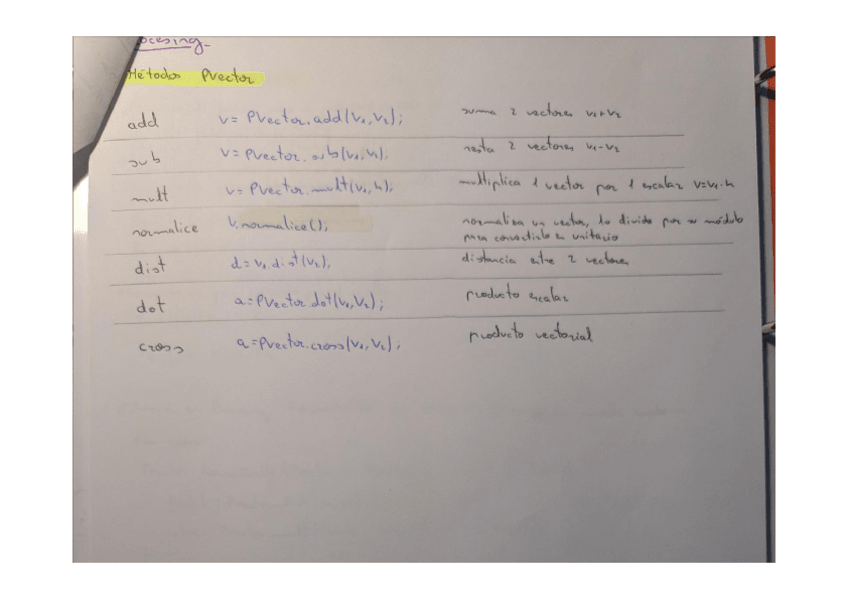 ocesing.
Métodos PVector
add v = PVector.add(v₁,v₂); suma 2 vectores v₁+v₂
sub v = PVector.sub(v₁,v₂); resta 2 vectores v₁-v₂
mult v = PVector.mult(v₁,n); multiplica 1 vector por 1 escalar v=v₁·n
normalice v.normalice(); normaliza un vector, lo divide por su módulo
para convertirlo en unitario
dist d = v₁.dist(v₂); distancia entre 2 vectores
dot a = PVector.dot(v₁,v₂); producto escalar
cross a = PVector.cross(v₁,v₂); producto vectorial